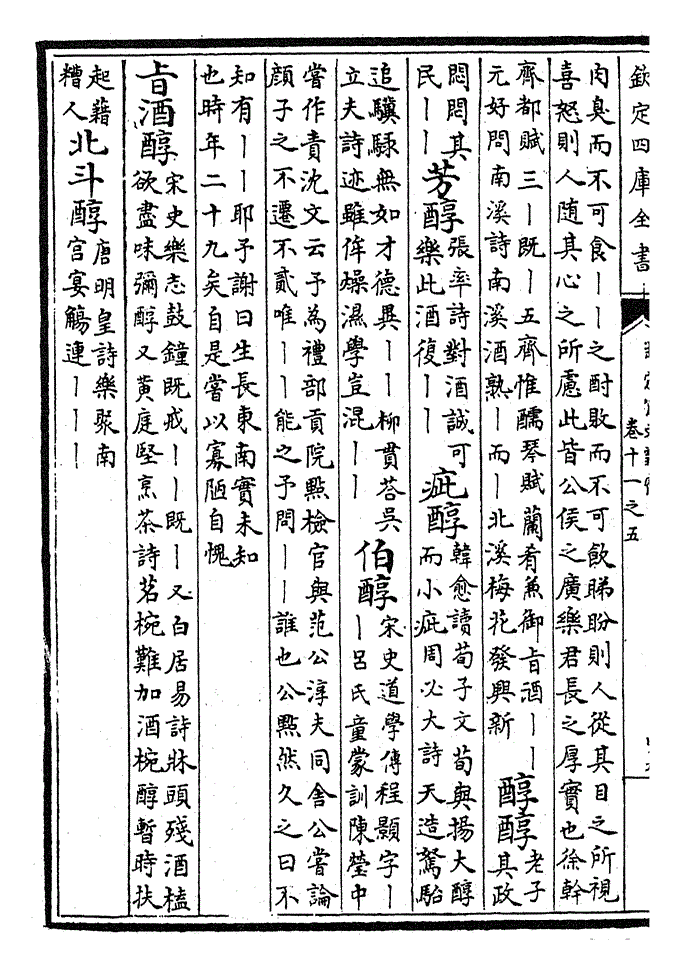 欽定四庫全書
卷十一之五
肉臭而不可食丨丨之酎敗而不可飲睇盼則人從其目之所視
喜怒則人随其心之所慮此皆公侯之廣樂君長之厚實也徐幹
齊都賦三丨既丨五齊惟醹琴賦蘭肴兼御旨酒丨丨
元好問南溪詩南溪酒熟丨而丨北溪梅花發興新
醇醇
老子
其政
悶悶其
民丨丨
芳醇
張率詩對酒誠可
樂此酒復丨丨
疵醇
韓愈讀荀子文荀與揚大醇
而小疵周必大詩天造駑駘
追驥騄無如才德異丨丨柳貫荅吳
立夫詩迹雖侔燥濕學豈混丨丨
伯醇
宋史道學傳程顥字丨
丨呂氏童蒙訓陳瑩中
嘗作責沈文云予為禮部貢院點檢官與范公淳夫同舍公嘗論
顔子之不遷不貳唯丨丨能之予問丨丨誰也公黙然久之曰不
知有丨丨耶予謝曰生長東南實未知
也時年二十九矣自是嘗以寡陋自愧
旨酒醇
宋史樂志鼓鐘既戒丨丨既丨又白居易詩牀頭殘酒榼
欲盡味彌醇又黄庭堅烹茶詩茗椀難加酒椀醇暫時扶
起藉
糟人
北斗醇
唐明皇詩樂聚南
宫宴觴連丨丨丨